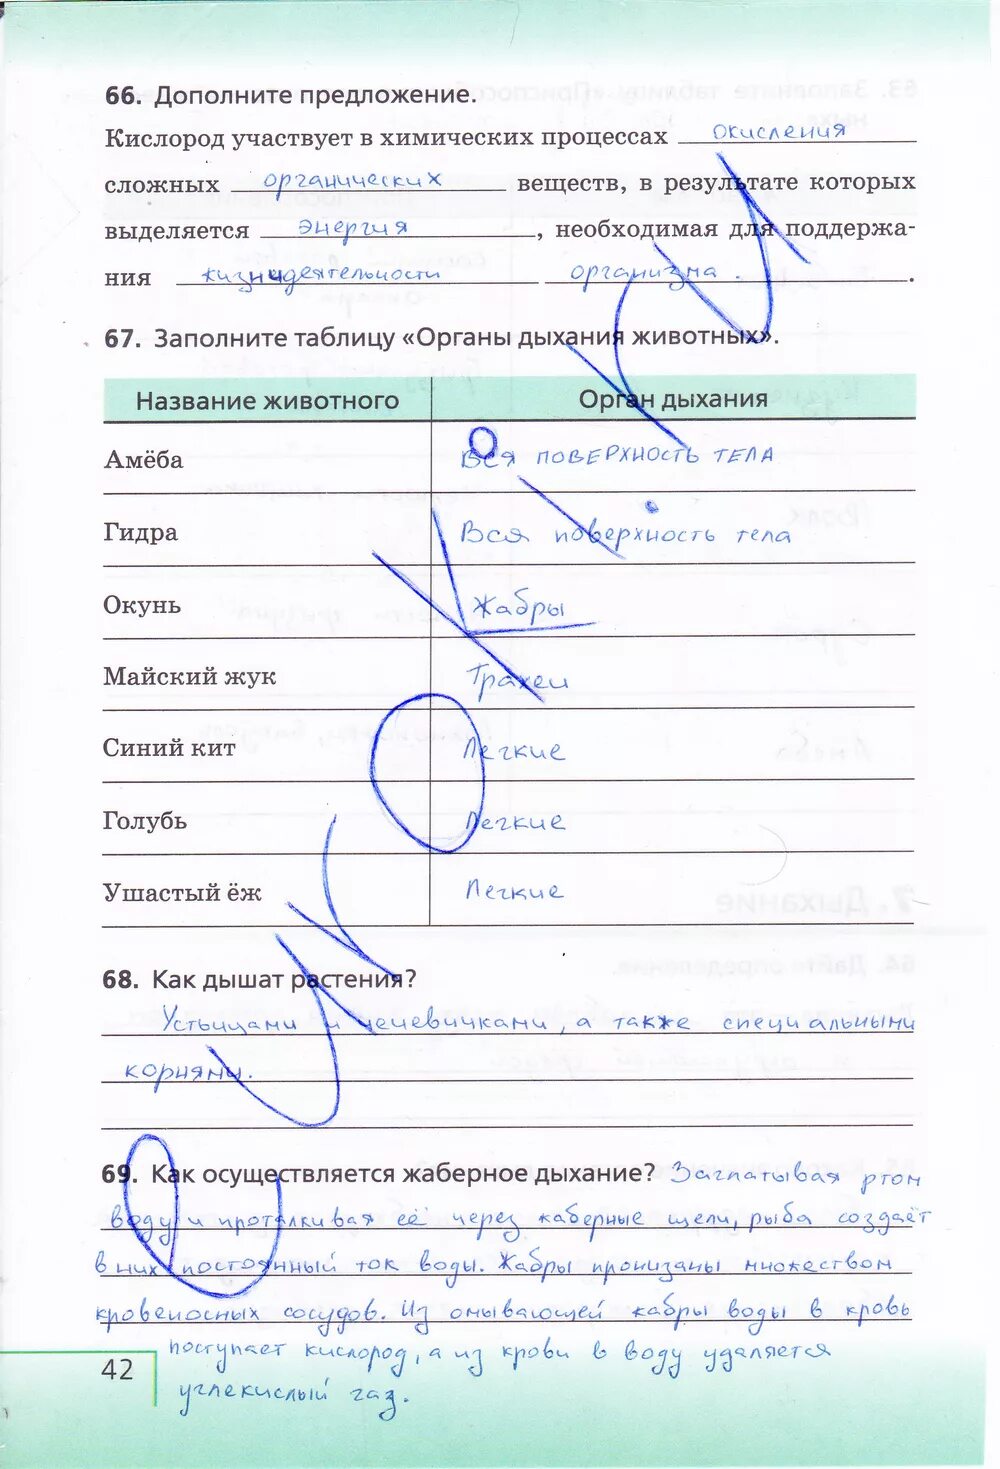 66. Дополните предложение.
Кислород участвует в химических процессах окисления
сложных органических веществ, в результате которых
выделяется энергия, необходимая для поддержа-
ния жизнидеятельности организма.
67. Заполните таблицу «Органы дыхания животных».
Название животного Орган дыхания
Амёба Вся поверхность тела
Гидра Вся поверхность тела
Окунь Жабры
Майский жук Трахеи
Синий кит Легкие
Голубь Легкие
Ушастый ёж Легкие
68. Как дышат растения?
Устьицами и чечевичками, а также специальными
корнями.
69. Как осуществляется жаберное дыхание? Заглатывая ртом
воду и проталкивая её через жаберные щели, рыба создаёт
в них постоянный ток воды. Жабры пронизаны множеством
кровеносных сосудов. Из омывающей жабры воды в кровь
поступает кислород, а из крови в воду удаляется
углекислый газ.
42